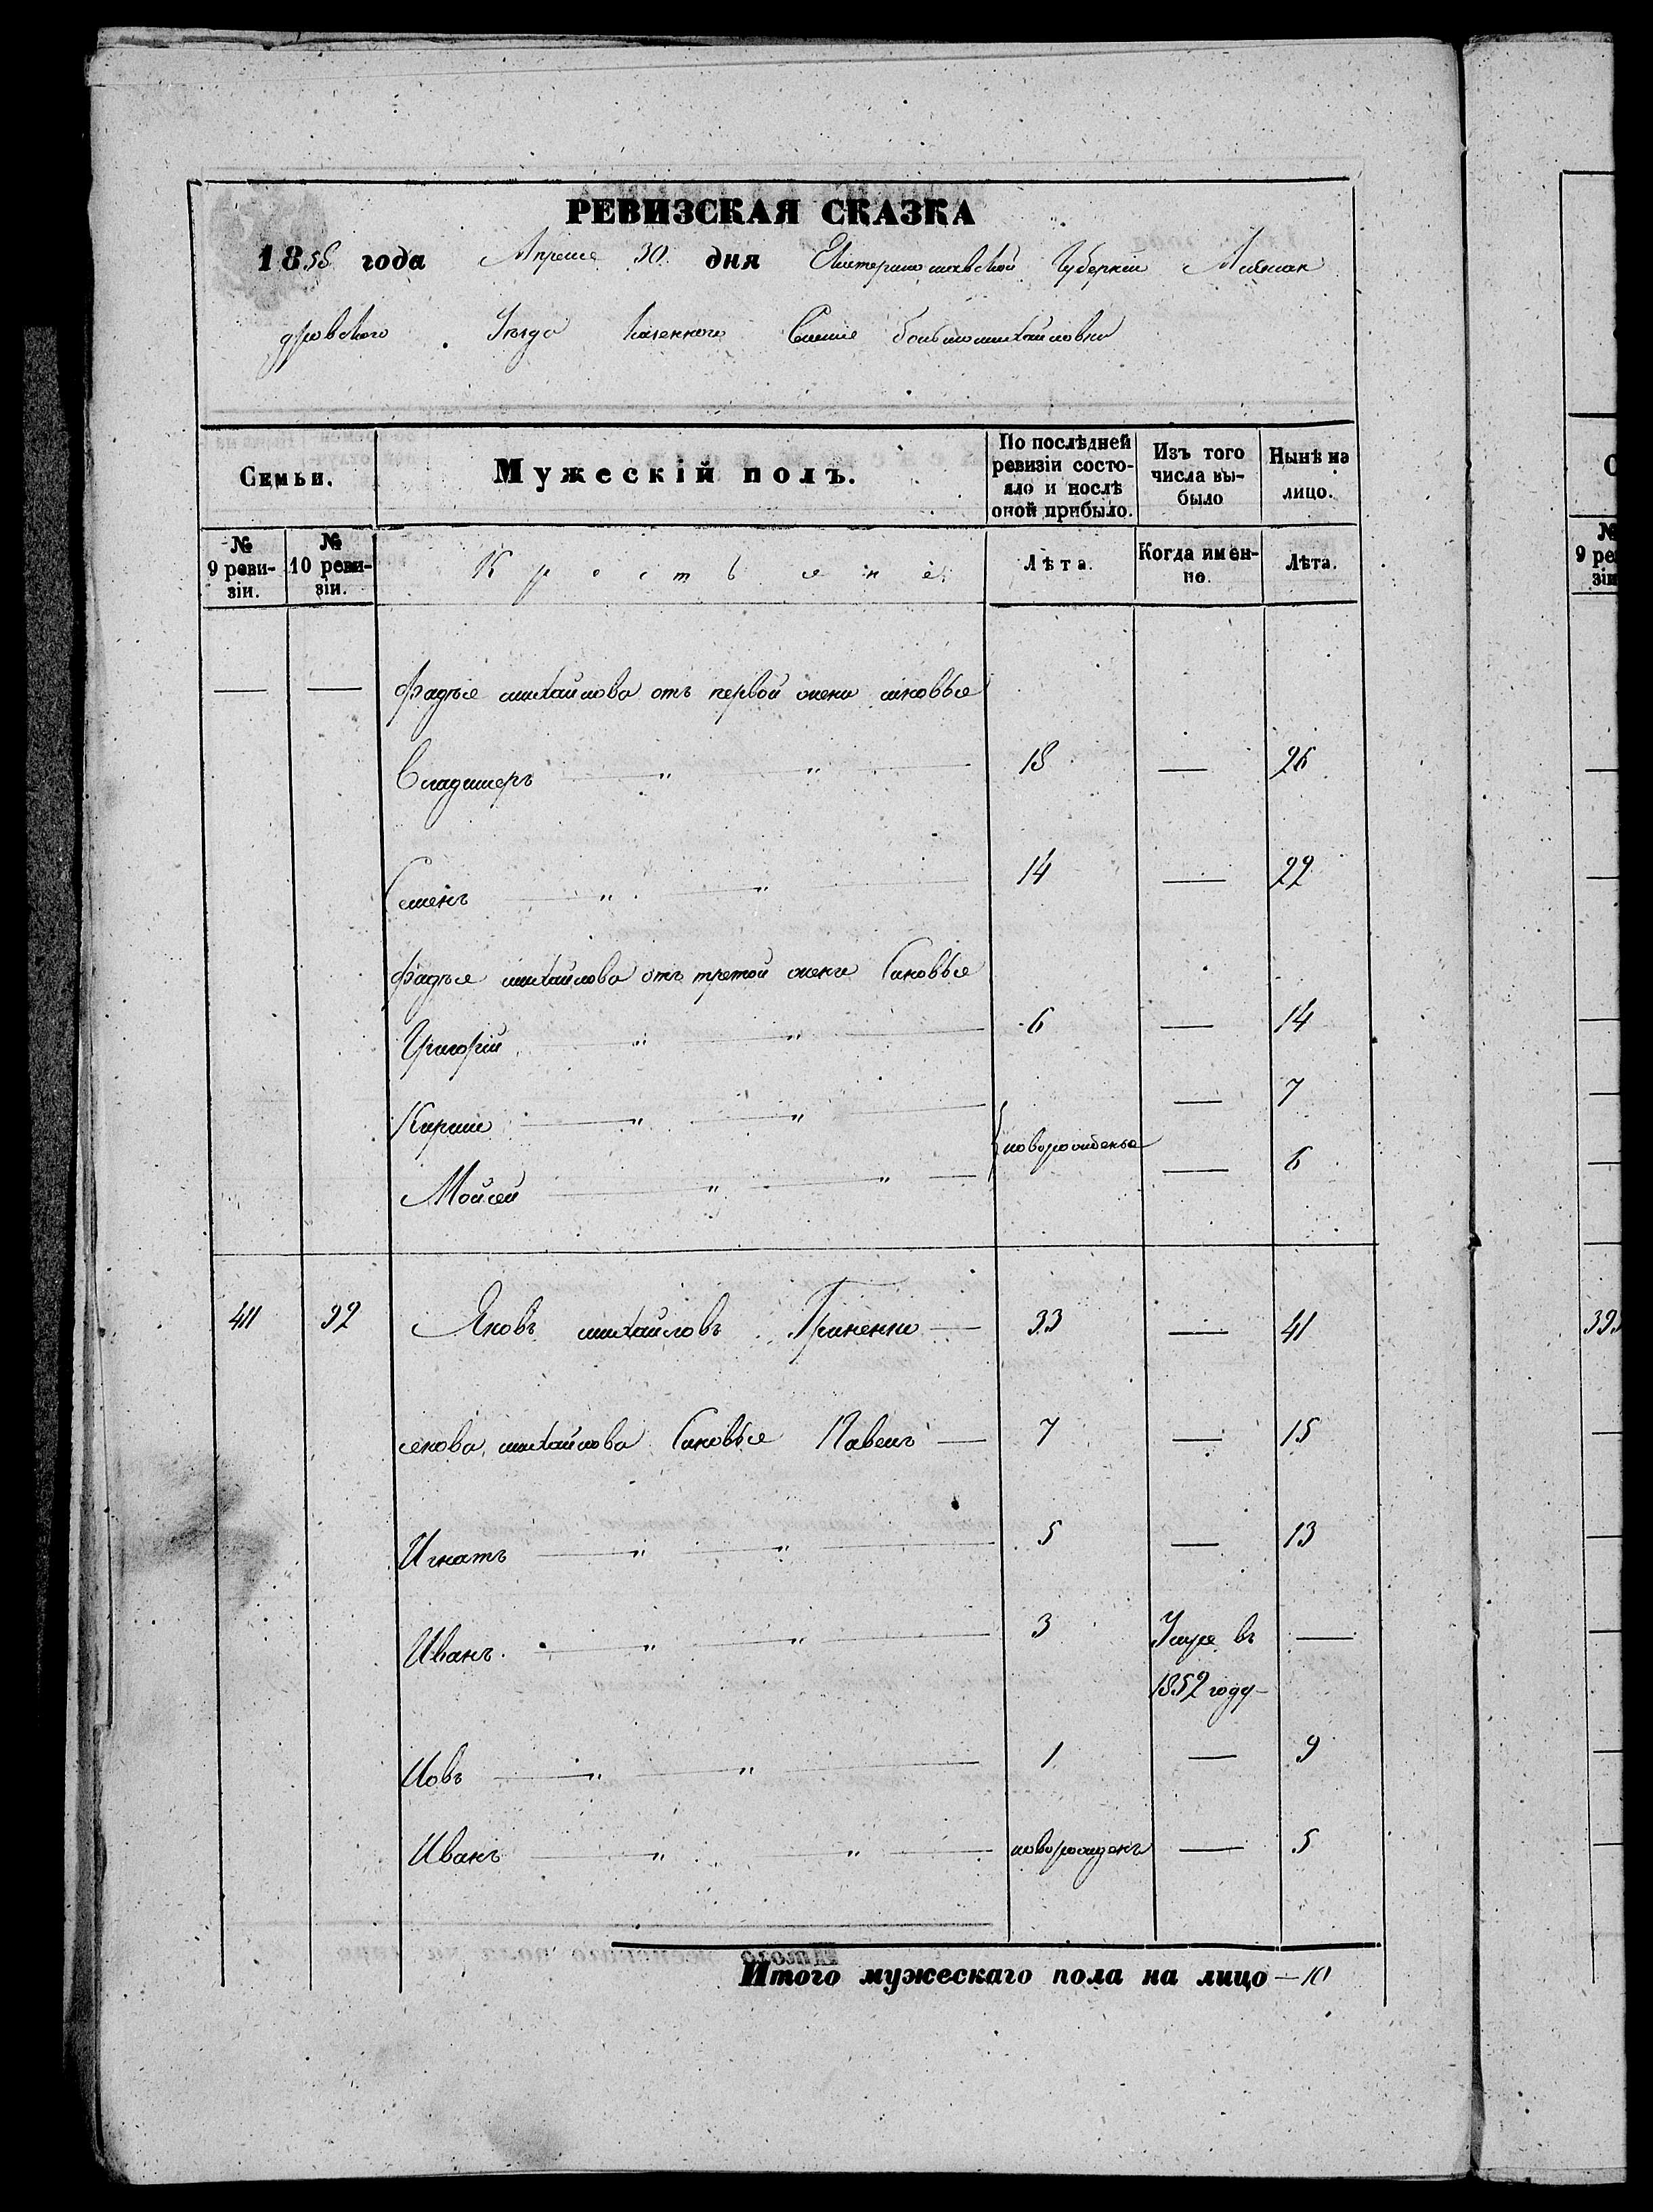 РЕВИЗСКАЯ СКАЗКА
1858 года Апреля 30 дня Екатеринославской Губернии Алексан
дровского Уезда Казенного Селения большомихайловки
Семьи.
Мужескій полъ.
По послѣдней ревизіи состояло и послѣ оной прибыло.
Изъ того числа выбыло
Нынѣ на лицо.
№ 9 ревизіи.
№ 10 ревизіи.
Крестьяне
Лѣта.
Когда именно.
Лѣта.
— — Фадѣя михайлова отъ первой жены сыновья
Владимеръ — " — " — 18 — 26
Семенъ — " — " — 14 — 22
Фадѣя михайлова отъ третой жены Сыновья
Григорій — " — " — 6 — 14
Кирило — " — " — — 7
новорожденые
Мойсей — " — " — — 6
411 92 Яковъ михайловъ Гриненко — 33 — 41
Якова михайлова Сыновья Павелъ — 7 — 15
Игнатъ — " — " — 5 — 13
Иванъ — " — " — 3 Умре въ 1852 году —
Иовъ — " — " — 1 — 9
Иванъ — " — " — новорожденъ — 5
Итого мужескаго пола на лицо — 10
№ 9 ре
зіи
393